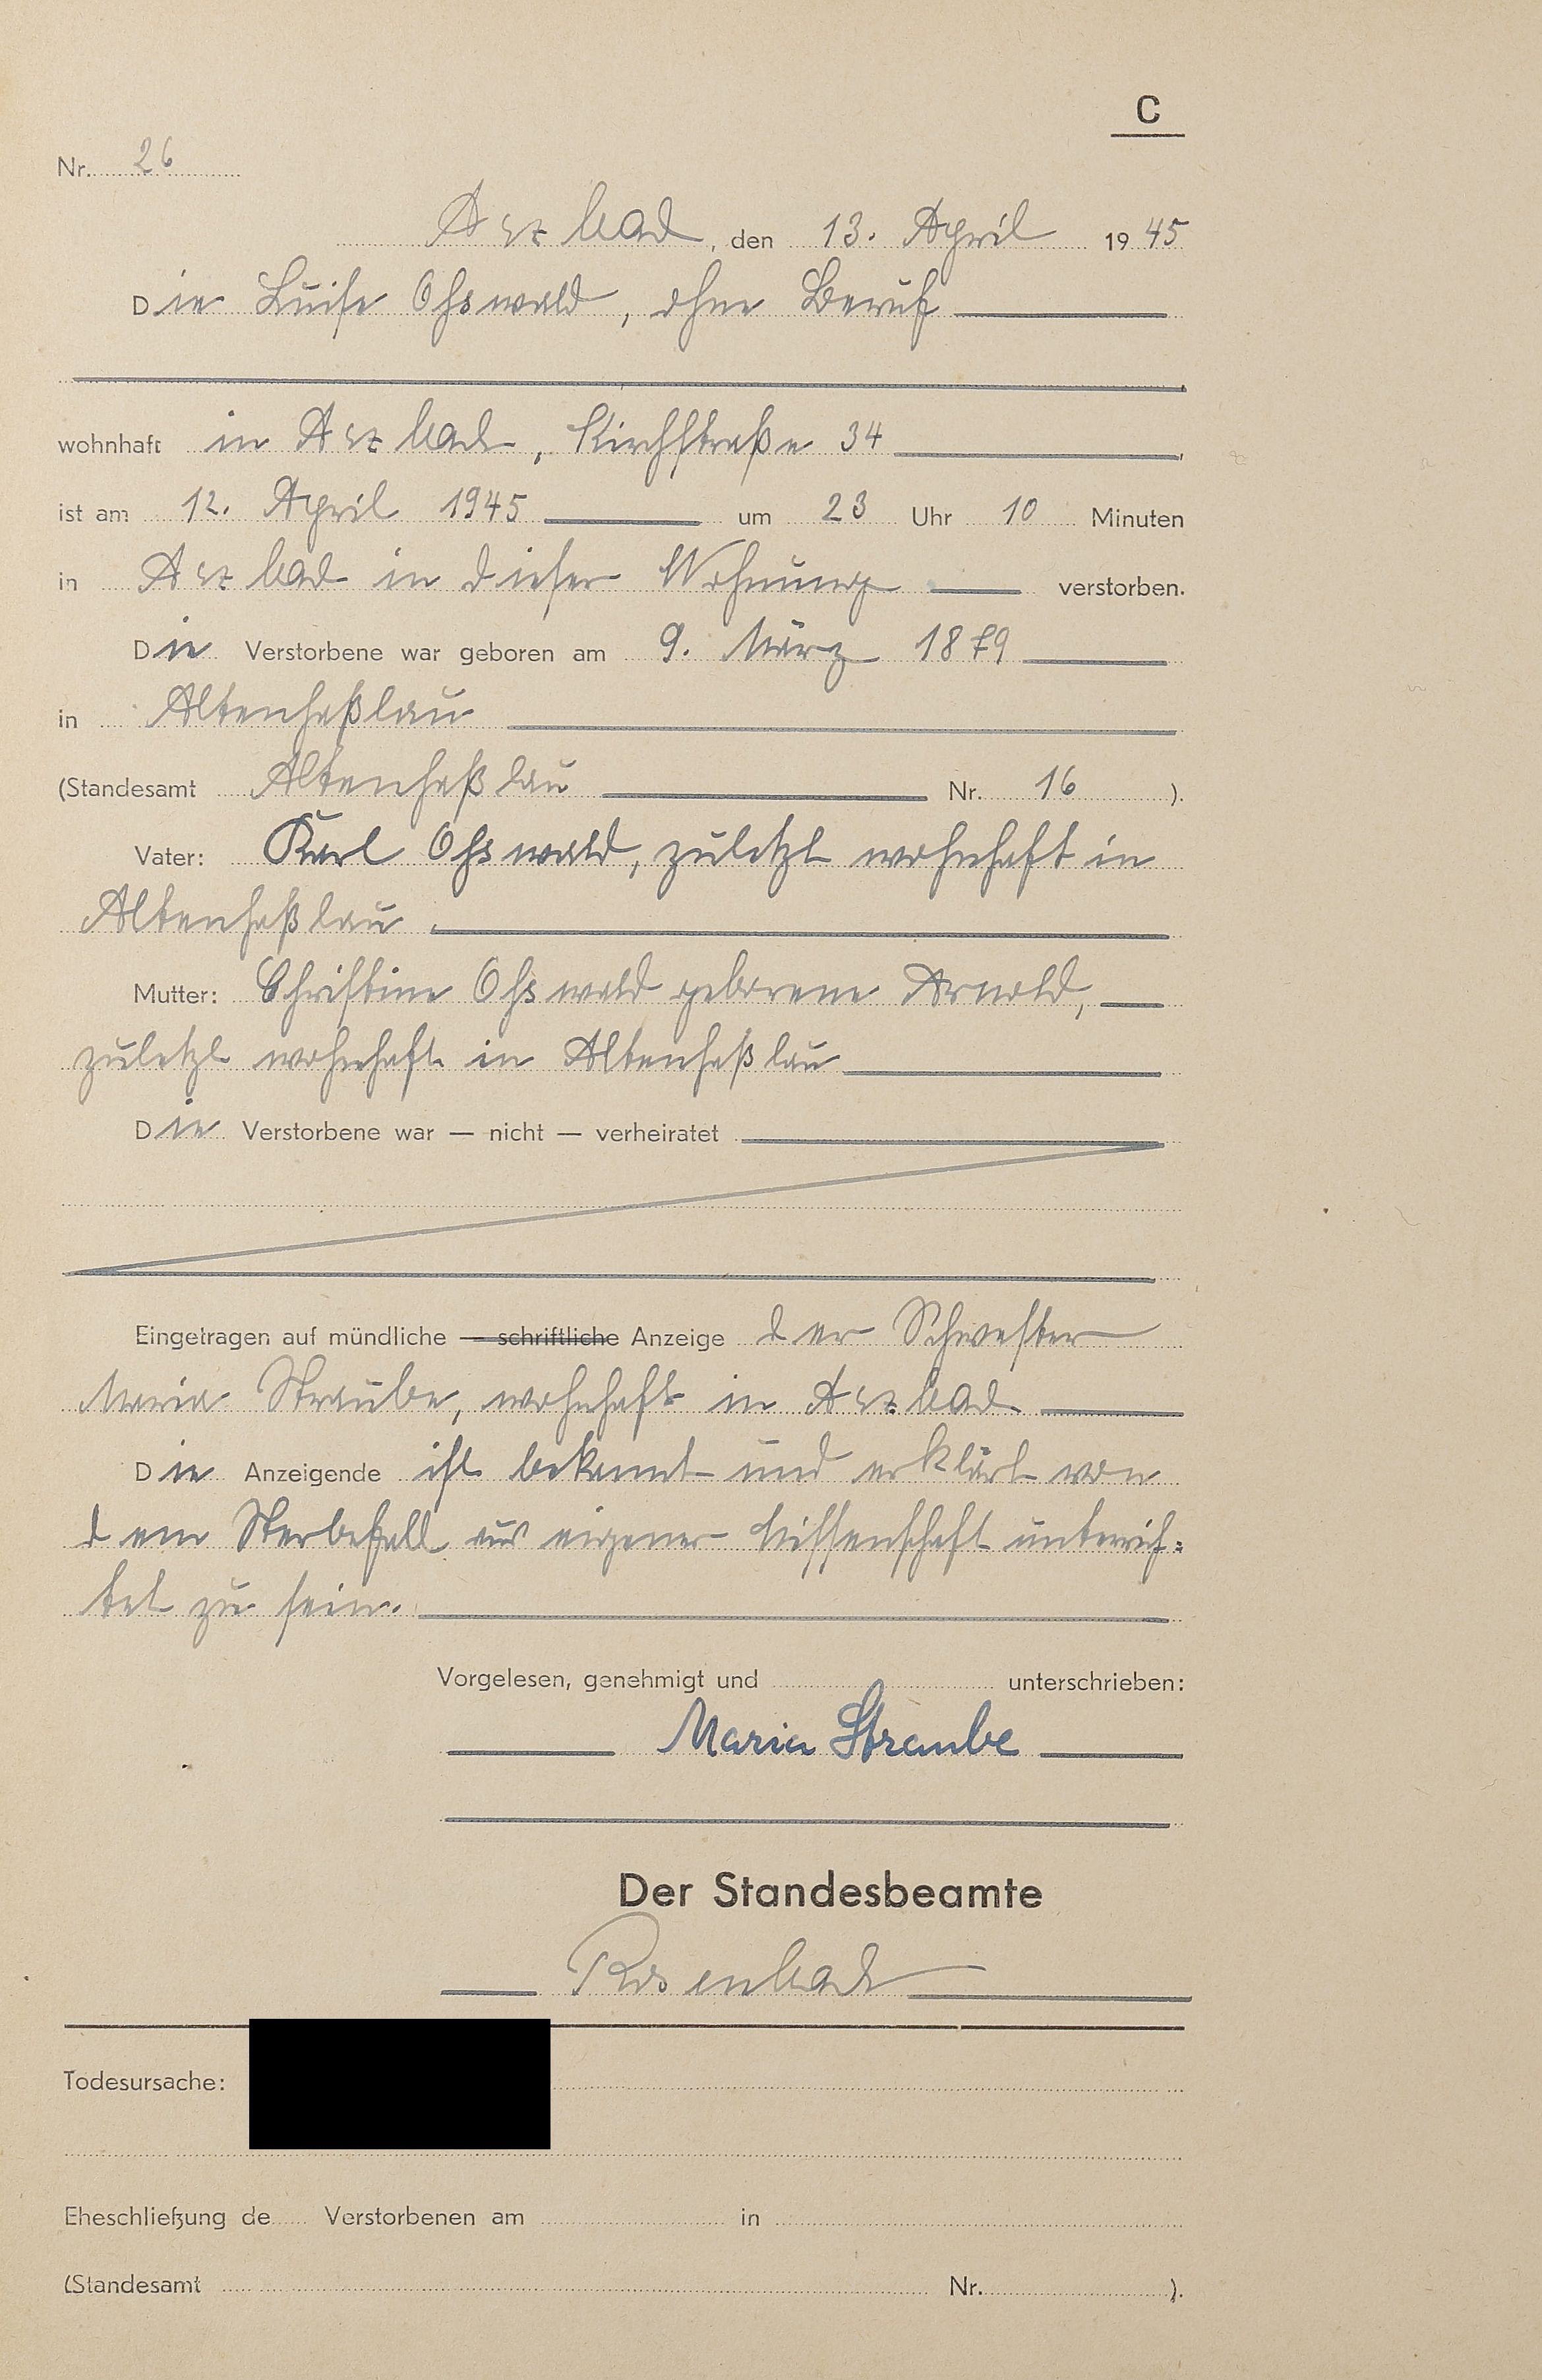 C
Nr. 26
Arzbach, den 13. April 1945
Die Luise Ohswald, ohne Beruf
wohnhaft in Arzbach, Kirchstraße 34
ist am 12. April 1945 um 23 Uhr 10 Minuten
in Arzbach in dieser Wohnung verstorben.
Die Verstorbene war geboren am 9. März 1879
in Altenhaßlau
(Standesamt Altenhaßlau Nr. 16 ).
Vater: Karl Ohswald, zuletzt wohnhaft in
Altenhaßlau
Mutter: Christine Ohswald geborene Arnold,
zuletzt wohnhaft in Altenhaßlau
Die Verstorbene war — nicht — verheiratet
Eingetragen auf mündliche — schriftliche Anzeige der Schwester
Maria Straube, wohnhaft in Arzbach
Die Anzeigende ist bekannt und erklärt von
dem Sterbefall aus eigener Wissenschaft unterrich=
tet zu sein.
Vorgelesen, genehmigt und unterschrieben:
Maria Straube
Der Standesbeamte
Rosenbach
Todesursache:
Eheschließung de Verstorbenen am in
(Standesamt Nr. ).